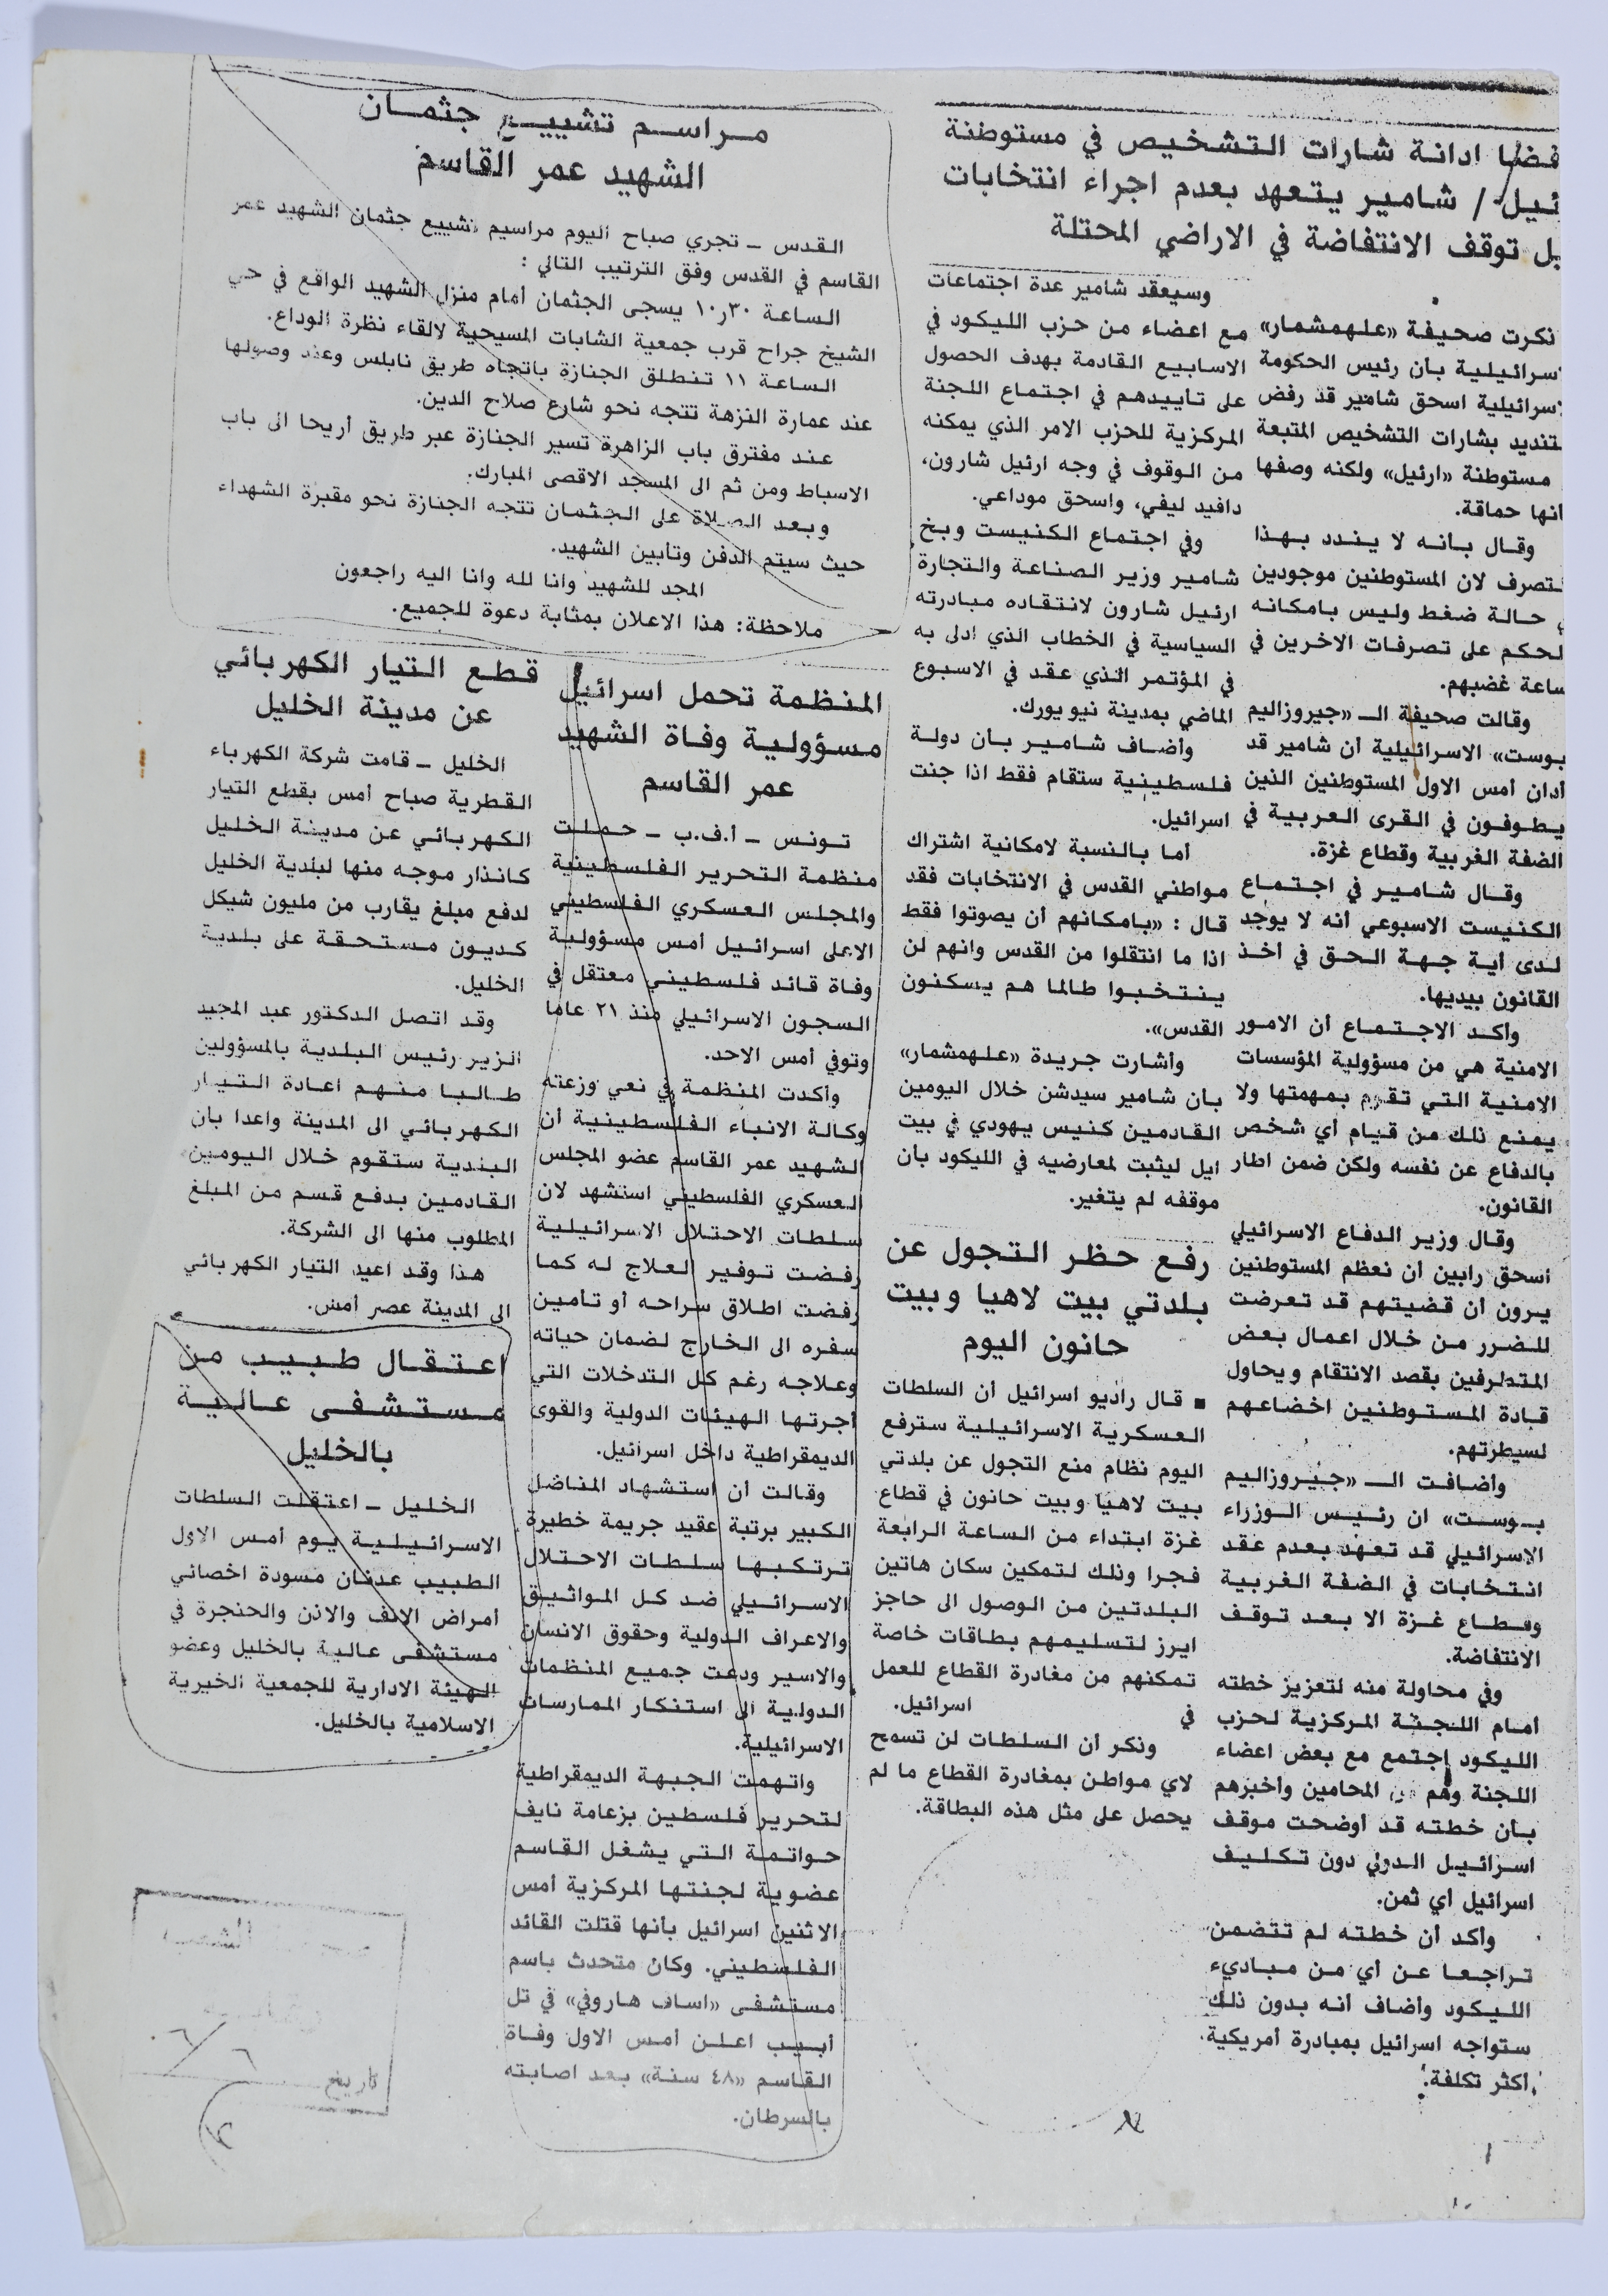 فضا ادانة شارات التشخيص في مستوطنة
ئيل / شامير يتعهد بعدم اجراء انتخابات
بل توقف الانتفاضة في الاراضي المحتلة
نكرت صحيفة «علهمشمار»
سرائيلية بأن رئيس الحكومة
سرائيلية اسحق شامير قد رفض
تنديد بشارات التشخيص المتبعة
مستوطنة «ارئيل» ولكنه وصفها
انها حماقة.
وقال بأنه لا يندد بهذا
لتصرف لان المستوطنين موجودين
ي حالة ضغط وليس بامكانه
لحكم على تصرفات الاخرين في
ساعة غضبهم.
وقالت صحيفة الـ «جيروزاليم
بوست» الاسرائيلية أن شامير قد
أدان أمس الاول المستوطنين الذين
يطوفون في القرى العربية في
الضفة الغربية وقطاع غزة.
وقال شامير في اجتماع
الكنيست الاسبوعي أنه لا يوجد
لدى أية جهة الحق في أخذ
القانون بيديها.
وأكد الاجتماع أن الامور
الامنية هي من مسؤولية المؤسسات
الامنية التي تقوم بمهمتها ولا
يمنع ذلك من قيام أي شخص
بالدفاع عن نفسه ولكن ضمن اطار
القانون.
وقال وزير الدفاع الاسرائيلي
اسحق رابين أن نعظم المستوطنين
يرون أن قضيتهم قد تعرضت
للضرر من خلال اعمال بعض
المتطرفين بقصد الانتقام ويحاول
قادة المستوطنين اخضاعهم
لسيطرتهم.
وأضافت الـ «جيروزاليم
بوست» ان رئيس الوزراء
الاسرائيلي قد تعهد بعدم عقد
انتخابات في الضفة الغربية
وقطاع غزة الا بعد توقف
الانتفاضة.
وفي محاولة منه لتعزيز خطته
أمام اللجنة المركزية لحزب
الليكود اجتمع مع بعض اعضاء
اللجنة وهم المحامين وأخبرهم
بأن خطته قد أوضحت موقف
اسرائيل الدولي دون تكليف
اسرائيل أي ثمن.
وأكد أن خطته لم تتضمن
تراجعا عن أي من مباديء
الليكود وأضاف أنه بدون ذلك
ستواجه اسرائيل بمبادرة أمريكية
أكثر تكلفة.
وسيعقد شامير عدة اجتماعات
مع اعضاء من حزب الليكود في
الاسابيع القادمة بهدف الحصول
على تأييدهم في اجتماع اللجنة
المركزية للحزب الامر الذي يمكنه
من الوقوف في وجه ارئيل شارون،
دافيد ليفي، واسحق موداعي.
وفي اجتماع الكنيست وبخ
شامير وزير الصناعة والتجارة
ارئيل شارون لانتقاده مبادرته
السياسية في الخطاب الذي ادلى به
في المؤتمر الذي عقد في الاسبوع
الماضي بمدينة نيويورك.
وأضاف شامير بأن دولة
فلسطينية ستقام فقط اذا جنت
اسرائيل.
أما بالنسبة لامكانية اشتراك
مواطني القدس في الانتخابات فقد
قال : «بامكانهم أن يصوتوا فقط
اذا ما انتقلوا من القدس وانهم لن
ينتخبوا طالما هم يسكنون
القدس».
وأشارت جريدة «علهمشمار»
بأن شامير سيدشن خلال اليومين
القادمين كنيس يهودي في بيت
ايل ليثبت لمعارضيه في الليكود بأن
موقفه لم يتغير.
رفع حظر التجول عن
بلدتي بيت لاهيا وبيت
حانون اليوم
■ قال راديو اسرائيل أن السلطات
العسكرية الاسرائيلية سترفع
اليوم نظام منع التجول عن بلدتي
بيت لاهيا وبيت حانون في قطاع
غزة ابتداء من الساعة الرابعة
فجرا وذلك لتمكين سكان هاتين
البلدتين من الوصول الى حاجز
ايرز لتسليمهم بطاقات خاصة
تمكنهم من مغادرة القطاع للعمل
في اسرائيل.
ونكر أن السلطات لن تسمح
لاي مواطن بمغادرة القطاع ما لم
يحصل على مثل هذه البطاقة.
مراسم تشييع جثمان
الشهيد عمر القاسم
القدس ـ تجري صباح اليوم مراسيم تشييع جثمان الشهيد عمر
القاسم في القدس وفق الترتيب التالي :
الساعة ١٠٫٣٠ يسجى الجثمان أمام منزل الشهيد الواقع في حي
الشيخ جراح قرب جمعية الشابات المسيحية لالقاء نظرة الوداع.
الساعة ١١ تنطلق الجنازة باتجاه طريق نابلس وعند وصولها
عند عمارة النزهة تتجه نحو شارع صلاح الدين.
عند مفترق باب الزاهرة تسير الجنازة عبر طريق أريحا الى باب
الاسباط ومن ثم الى المسجد الاقصى المبارك.
وبعد الصلاة على الجثمان تتجه الجنازة نحو مقبرة الشهداء
حيث سيتم الدفن وتأبين الشهيد.
المجد للشهيد وانا لله وانا اليه راجعون
ملاحظة: هذا الاعلان بمثابة دعوة للجميع.
المنظمة تحمل اسرائيل
مسؤولية وفاة الشهيد
عمر القاسم
تونس ـ أ.ف.ب ـ حملت
منظمة التحرير الفلسطينية
والمجلس العسكري الفلسطيني
الاعلى اسرائيل أمس مسؤولية
وفاة قائد فلسطيني معتقل في
السجون الاسرائيلي منذ ٢١ عاما
وتوفي أمس الاحد.
وأكدت المنظمة في نعي وزعته
وكالة الانباء الفلسطينية أن
الشهيد عمر القاسم عضو المجلس
العسكري الفلسطيني استشهد لان
سلطات الاحتلال الاسرائيلية
رفضت توفير العلاج له كما
رفضت اطلاق سراحه أو تأمين
سفره الى الخارج لضمان حياته
وعلاجه رغم كل التدخلات التي
أجرتها الهيئات الدولية والقوى
الديمقراطية داخل اسرائيل.
وقالت أن استشهاد المناضل
الكبير برتبة عقيد جريمة خطيرة
ترتكبها سلطات الاحتلال
الاسرائيلي ضد كل المواثيق
والاعراف الدولية وحقوق الانسان
والاسير ودعت جميع المنظمات
الدولية الى استنكار الممارسات
الاسرائيلية.
واتهمت الجبهة الديمقراطية
لتحرير فلسطين بزعامة نايف
حواتمة التي يشغل القاسم
عضوية لجنتها المركزية أمس
الاثنين اسرائيل بأنها قتلت القائد
الفلسطيني. وكان متحدث باسم
مستشفى «اساف هاروفي» في تل
أبيب اعلن أمس الاول وفاة
القاسم «٤٨ سنة» بعد اصابته
بالسرطان.
قطع التيار الكهربائي
عن مدينة الخليل
الخليل ـ قامت شركة الكهرباء
القطرية صباح أمس بقطع التيار
الكهربائي عن مدينة الخليل
كانذار موجه منها لبلدية الخليل
لدفع مبلغ يقارب من مليون شيكل
كديون مستحقة على بلدية
الخليل.
وقد اتصل الدكتور عبد المجيد
الزير رئيس البلدية بالمسؤولين
طالبا منهم اعادة التيار
الكهربائي الى المدينة واعدا بأن
البلدية ستقوم خلال اليومين
القادمين بدفع قسم من المبلغ
المطلوب منها الى الشركة.
هذا وقد اعيد التيار الكهربائي
الى المدينة عصر أمس.
اعتقال طبيب من
مستشفى عالية
بالخليل
الخليل ـ اعتقلت السلطات
الاسرائيلية يوم أمس الاول
الطبيب عدنان مسودة اخصائي
أمراض الانف والاذن والحنجرة في
مستشفى عالية بالخليل وعضو
الهيئة الادارية للجمعية الخيرية
الاسلامية بالخليل.
الشعب
تاريخ ٦/٦